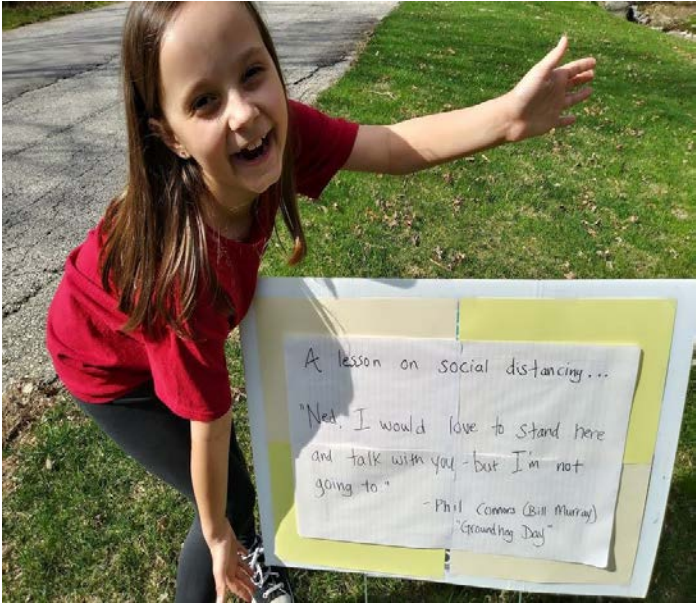 A lesson on social distancing...
"Ned, I would love to stand here
and talk with you - but I'm not
going to."
- Phil Connors (Bill Murray)
"Groundhog Day"